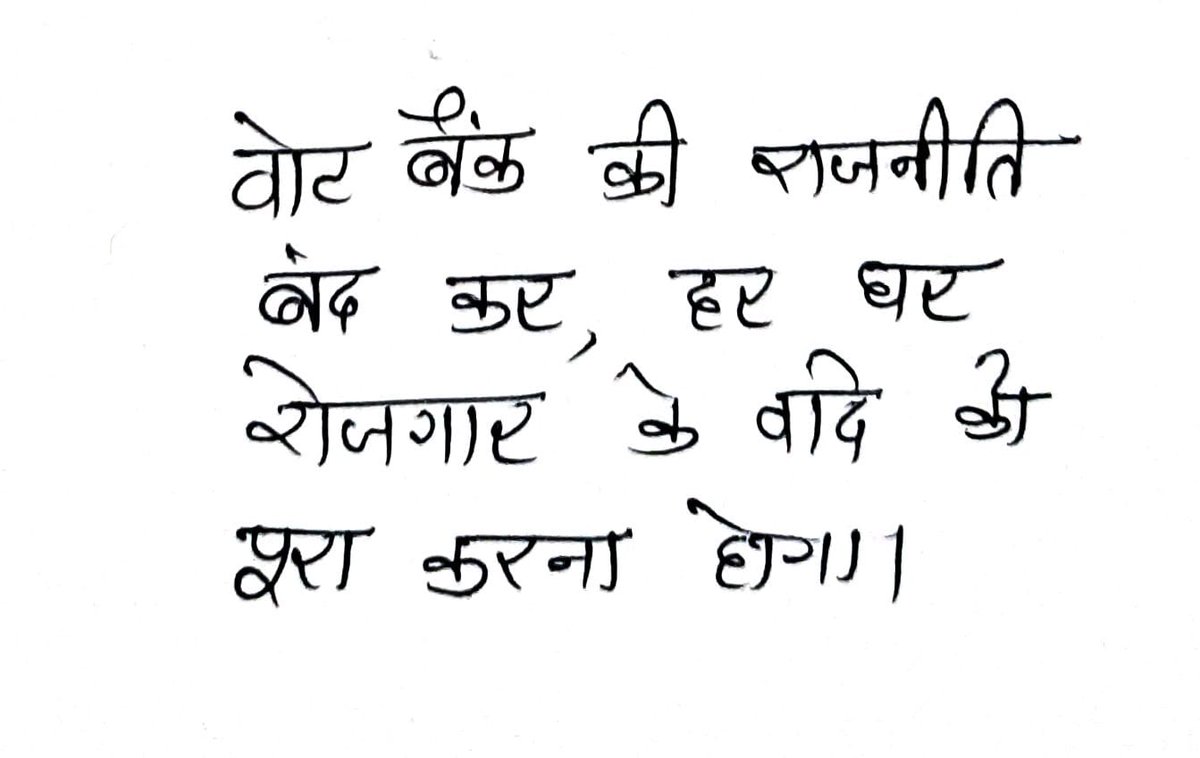 वोट बैंक की राजनीति
बंद कर, हर घर
रोजगार के वादे को
पूरा करना होगा।